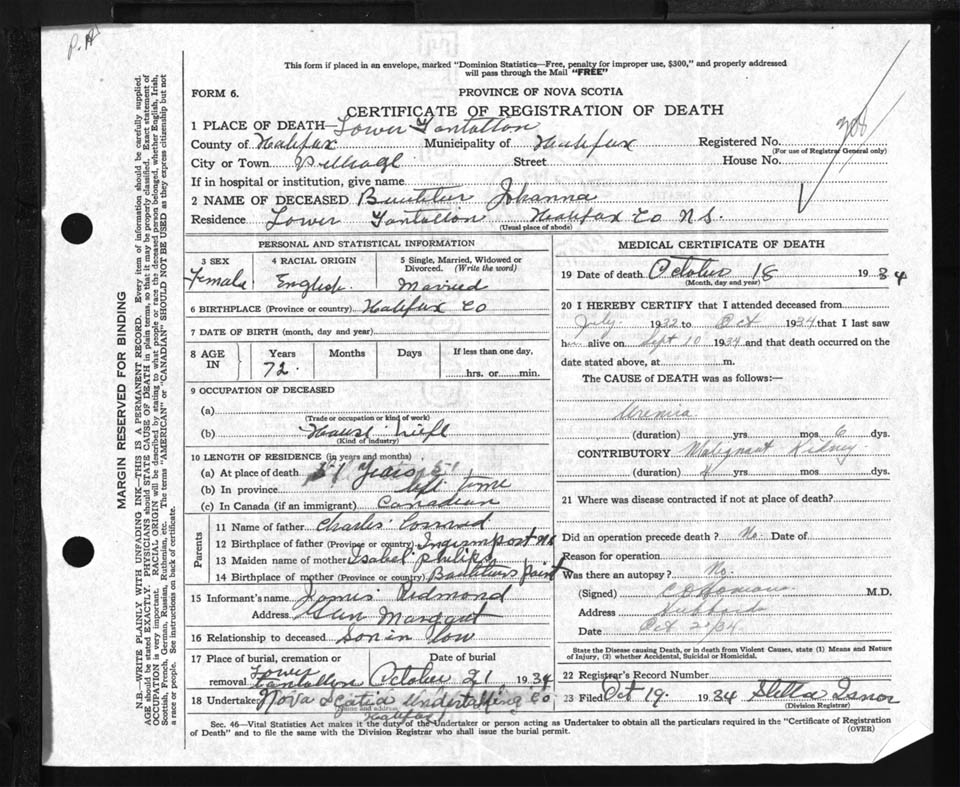 P.A
This form if placed in an envelope, marked "Dominion Statistics—Free, penalty for improper use, $300," and properly addressed
will pass through the Mail "FREE"
FORM 6.
PROVINCE OF NOVA SCOTIA
CERTIFICATE OF REGISTRATION OF DEATH
1 PLACE OF DEATH— Lower Tantallon
County of Halifax Municipality of Halifax Registered No.
(For use of Registrar General only)
City or Town Village Street House No.
If in hospital or institution, give name
2 NAME OF DECEASED Johanna
Residence Lower Tantallon Halifax Co N.S.
(Usual place of abode)
PERSONAL AND STATISTICAL INFORMATION
3 SEX 4 RACIAL ORIGIN 5 Single, Married, Widowed or
Divorced. (Write the word)
Female English. Married
6 BIRTHPLACE (Province or country) Halifax Co
7 DATE OF BIRTH (month, day and year)
8 AGE IN Years Months Days If less than one day,
72. hrs. or min.
9 OCCUPATION OF DECEASED
(a)
(Trade or occupation or kind of work)
(b) House wife
(Kind of industry)
10 LENGTH OF RESIDENCE (in years and months)
(a) At place of death 51 Years
(b) In province life time
(c) In Canada (if an immigrant) Canadian
Parents
11 Name of father Charles Conrad
12 Birthplace of father (Province or country) NS
13 Maiden name of mother Isabel
14 Birthplace of mother (Province or country) Point
15 Informant's name James Redmond
Address Glen Margaret
16 Relationship to deceased Son in law
17 Place of burial, cremation or Date of burial
removal Lower Tantallon October 21 1934
18 Undertaker Nova Scotia Undertaking Co
(Name and address) Halifax
MEDICAL CERTIFICATE OF DEATH
19 Date of death October 18 1934
(Month, day and year)
20 I HEREBY CERTIFY that I attended deceased from
July 1932 to Oct 1934 that I last saw
her alive on Sept 10 1934 and that death occurred on the
date stated above, at m.
The CAUSE of DEATH was as follows:—
Uremia
(duration) yrs. mos. 6 dys.
CONTRIBUTORY Malignant Kidney
(duration) yrs. mos. dys.
21 Where was disease contracted if not at place of death?
Did an operation precede death? No. Date of
Reason for operation
Was there an autopsy? No.
(Signed) M.D.
Address Hubbards
Date Oct 20/34.
State the Disease causing Death, or in deaths from Violent Causes, state (1) Means and Nature
of Injury, (2) whether Accidental, Suicidal or Homicidal.
22 Registrar's Record Number
23 Filed Oct 19. 1934 Stella
(Division Registrar)
Sec. 46—Vital Statistics Act makes it the duty of the Undertaker or person acting as Undertaker to obtain all the particulars required in the "Certificate of Registration
of Death" and to file the same with the Division Registrar who shall issue the burial permit.
(OVER)
MARGIN RESERVED FOR BINDING
N.B.—WRITE PLAINLY WITH UNFADING INK—THIS IS A PERMANENT RECORD. Every item of information should be carefully supplied.
AGE should be stated EXACTLY. PHYSICIANS should STATE CAUSE OF DEATH in plain terms, so that it may be properly classified. Exact statement of
OCCUPATION is very important. RACIAL ORIGIN will be described by stating to what people or race the deceased person belonged, whether English, Irish,
Scottish, French, German, Russian, Ruthenian, etc. The terms "AMERICAN" or "CANADIAN" SHOULD NOT BE USED as they express citizenship but not
a race or people. See instructions on back of certificate.